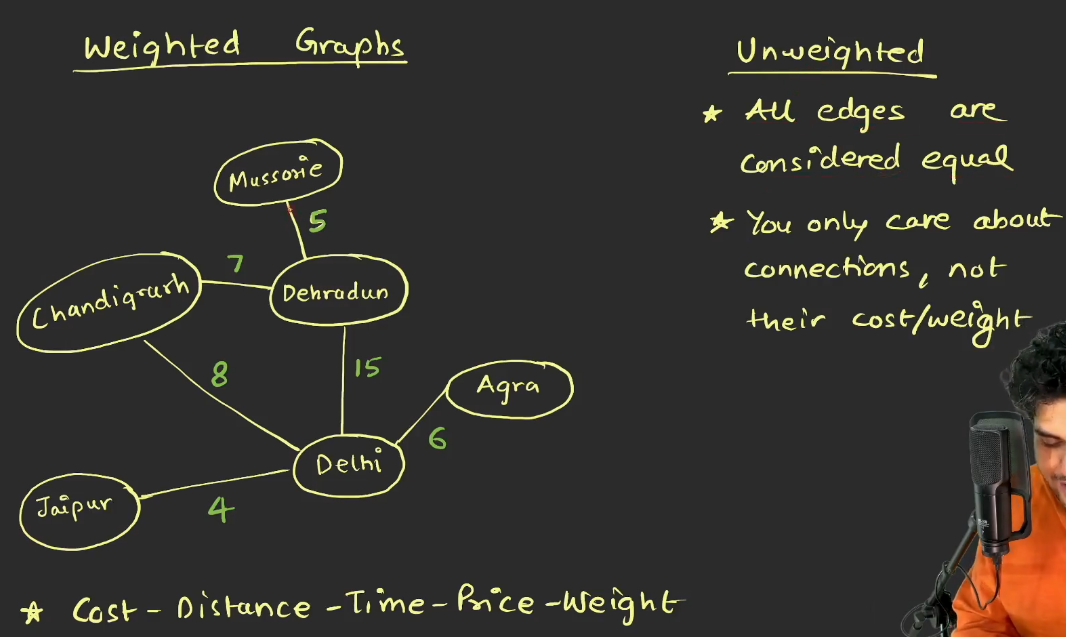 Weighted Graphs
Mussorie
5
7
Chandigrarh
Dehradun
8
15
Agra
6
Delhi
Jaipur
4
★ Cost - Distance - Time - Price - Weight
Unweighted
★ All edges are
considered equal
★ You only care about
connections, not
their cost/weight